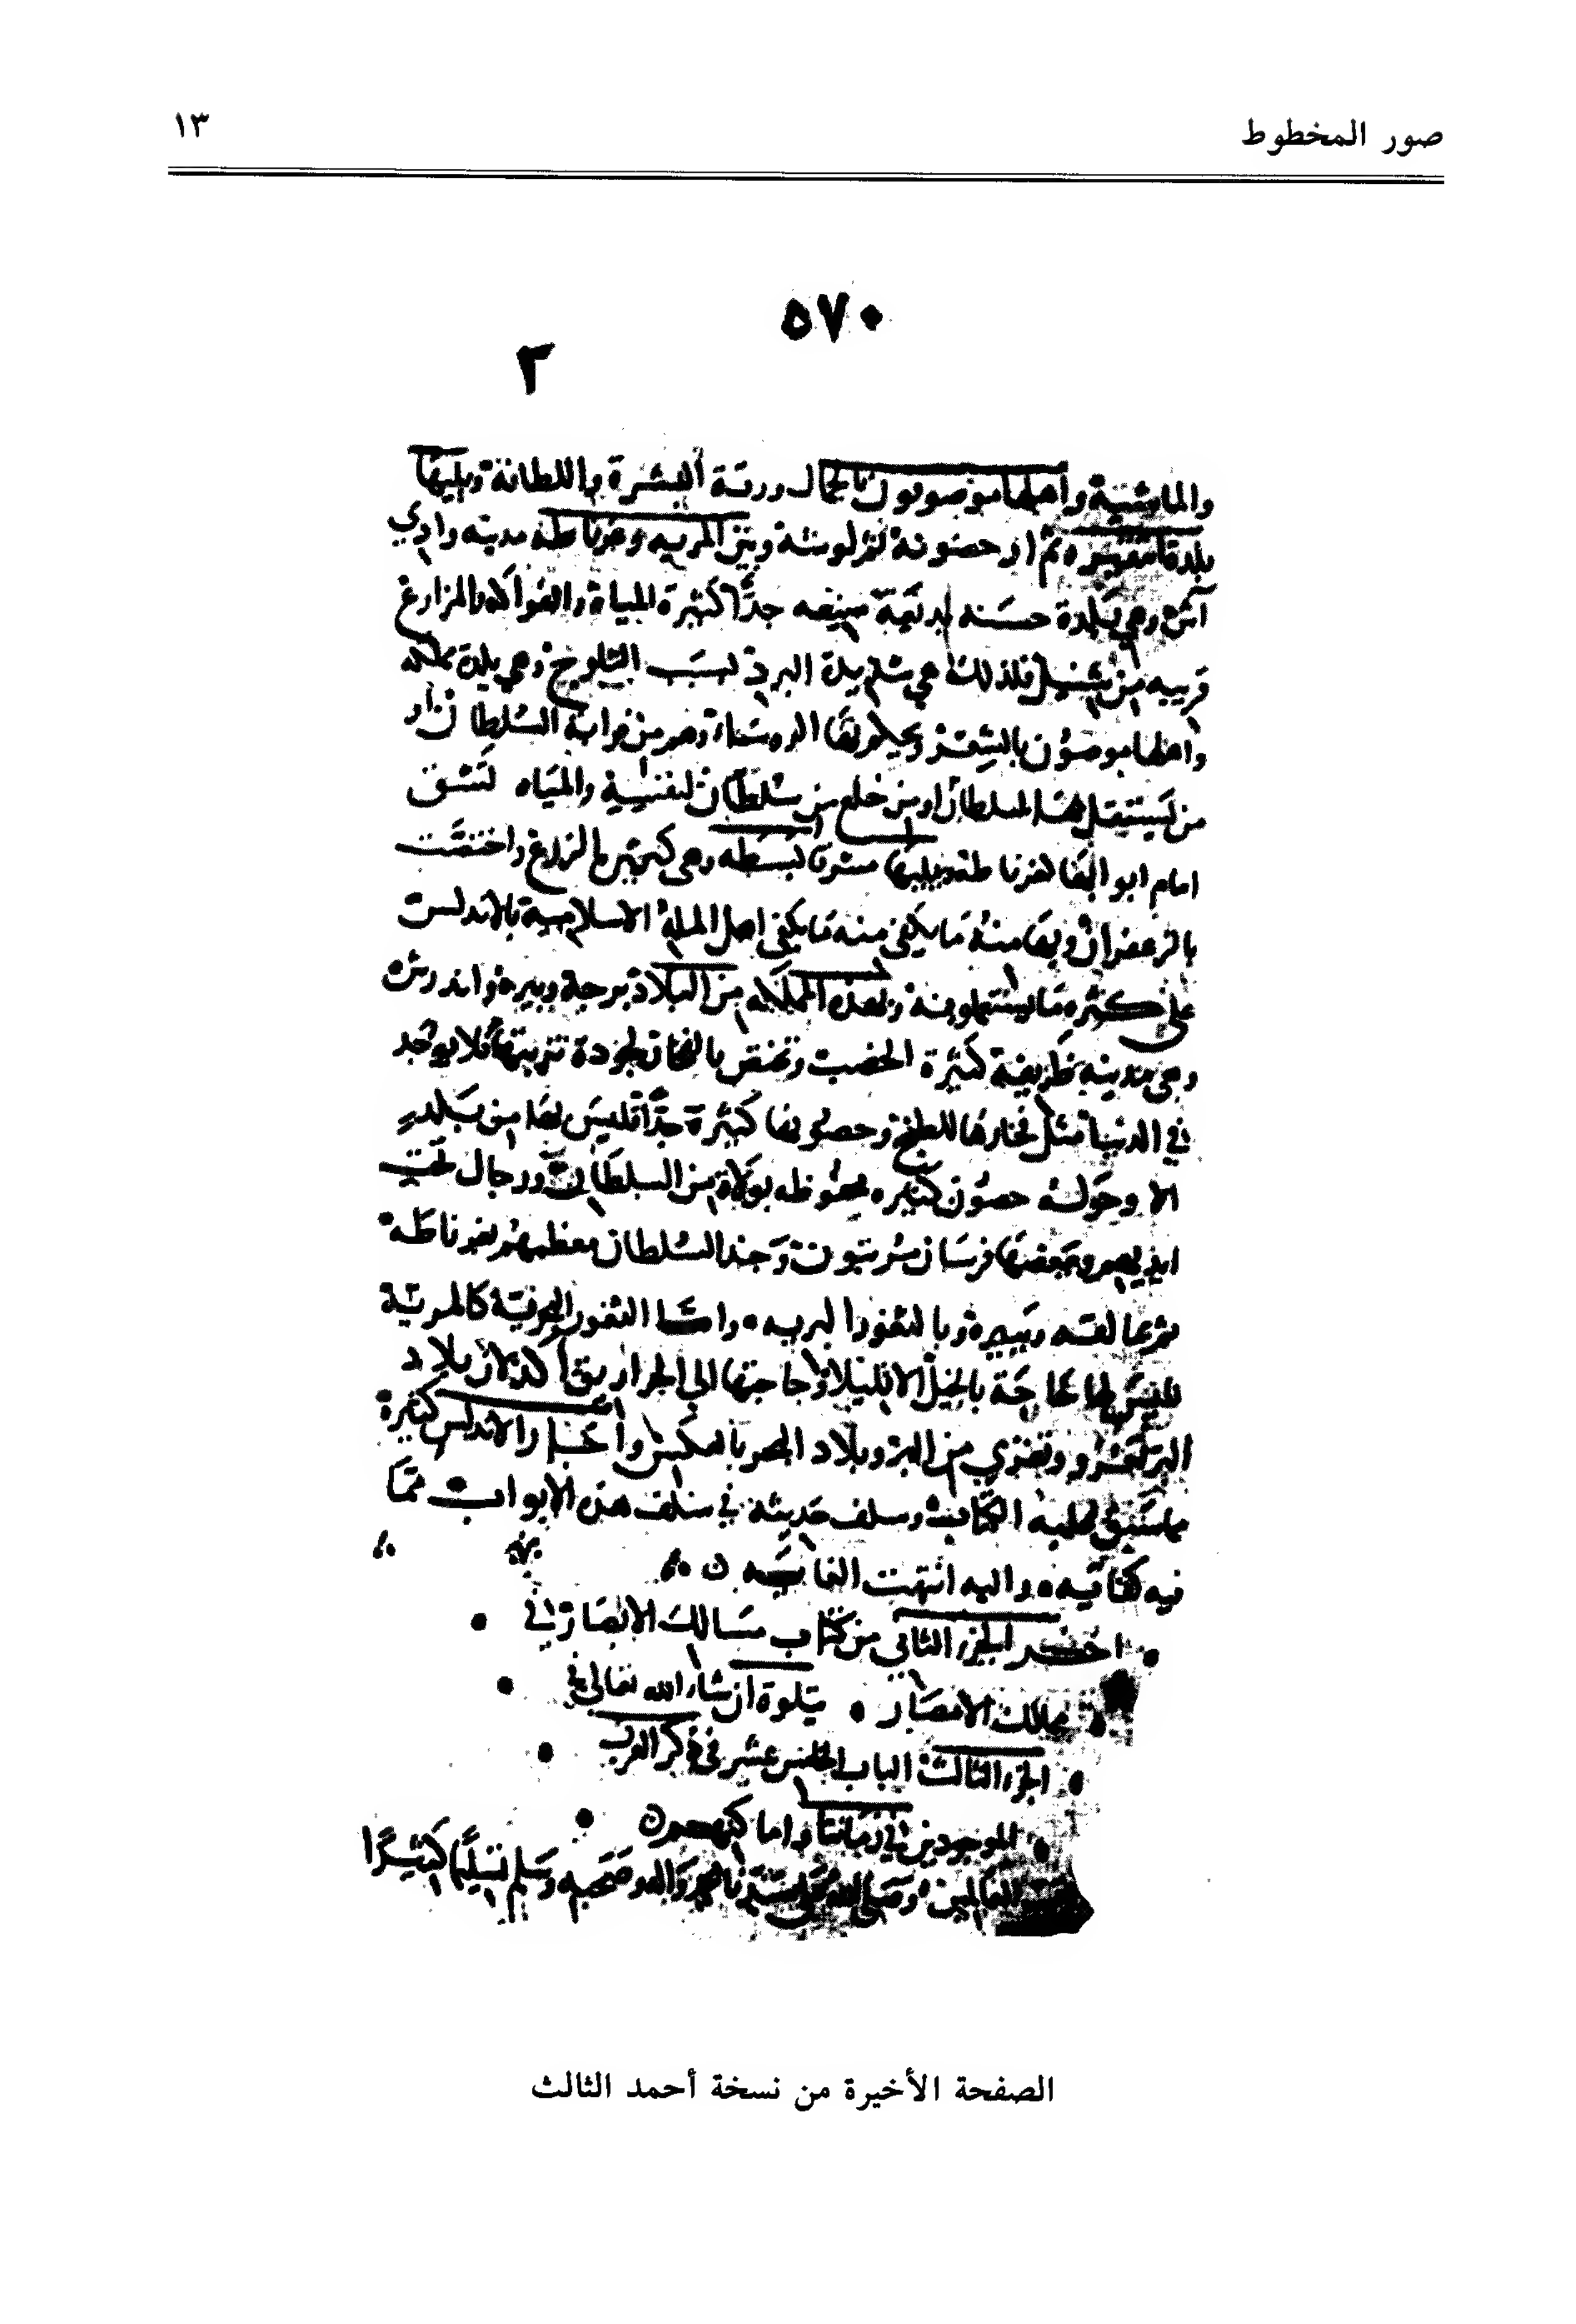 صور المخطوط
١٣
٥٧٠
٢
والماشية وأهلها موصوفون بالجمال ورقة البشرة واللطافة ويليها
بلدة ثم حصونه لوشة وبين المريه وغرناطة مدينه وادي
آش وهي بلدة حسنه بديعة منيعه جدًّا كثيرة المياه والفواكه والمزارع
قريبه من شنيل فلذلك هي شديدة البرد لسبب الثلوج وهي بلدة مملكه
واهلها موصوفون بالشعر السلطان او
من السلطان او من خلع من سلطان لنفسه والمياه تشق
امام ابوابها لغرناطة ويليها بسطه وهي كثير الزرع واختصت
بالزعفران وبها منه ما يكفي منه ما يكفي اهل الملة الاسلامية بالاندلس
على كثره ما يستهلونه ولهذه المملكه من البلاد برجة وبيره واندرش
وهي مدينه ظريفة كثيرة الخصب وتختص بالفخار لجودة تربتها فلا يوجد
في الدنيا مثل فخارها للطبخ وحصونها كثيرة جدًّا فليس بها من بلد
الا وحوله حصون كثيره محفوظه بولاة من السلطان ورجال تحت
ايديهم وببعضها فرسان مرتبون وجند السلطان معظمهم بغرناطة
ثم بمالقه وبيره وبالثغور البريه واما الثغور البحرية كالمرية
فليس لها حاجة بالخيل الا قليلا وحاجتها الى الجرار بق اكد لان بلاد
البر تغزو وتغزي من البر وبلاد البحر بالعكس وأخبار الاندلس كثيرة
الكتاب وسلف حديثه في سلف هذه الابواب مما
فيه كفايه واليه انتهت الغايه
اخر الجزء الثاني من كتاب مسالك الابصار في
ممالك الامصار يتلوه ان شاء الله تعالى في
الجزء الثالث الباب الخامس عشر في ذكر العرب
الموجودين في زماننا واماكنهم
العالمين وصلى الله على سيدنا محمد واله وصحبه وسلم تسليمًا كثيرًا
الصفحة الأخيرة من نسخة أحمد الثالث